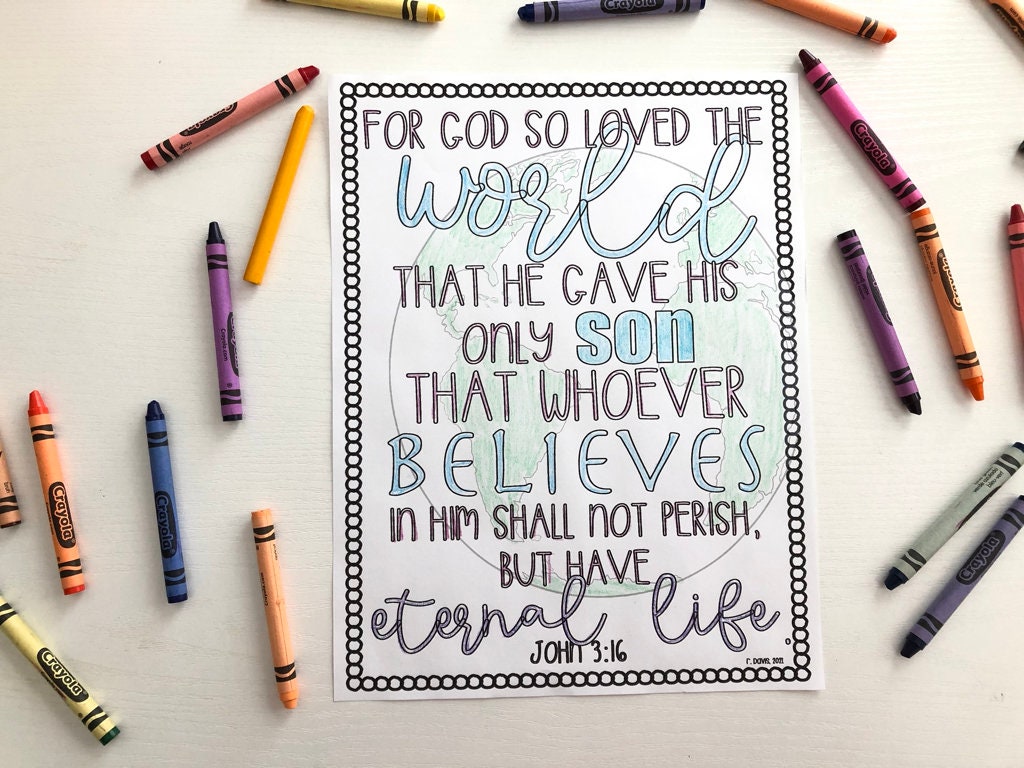 FOR GOD SO LOVED THE
world
THAT HE GAVE HIS
ONLY son
THAT WHOEVER
BELIEVES
IN HIM SHALL NOT PERISH,
BUT HAVE
eternal life
JOHN 3:16
r. Davis, 2021
Crayola
Crayola
Crayola
Crayola
Crayola
Crayola
Crayola
Crayola